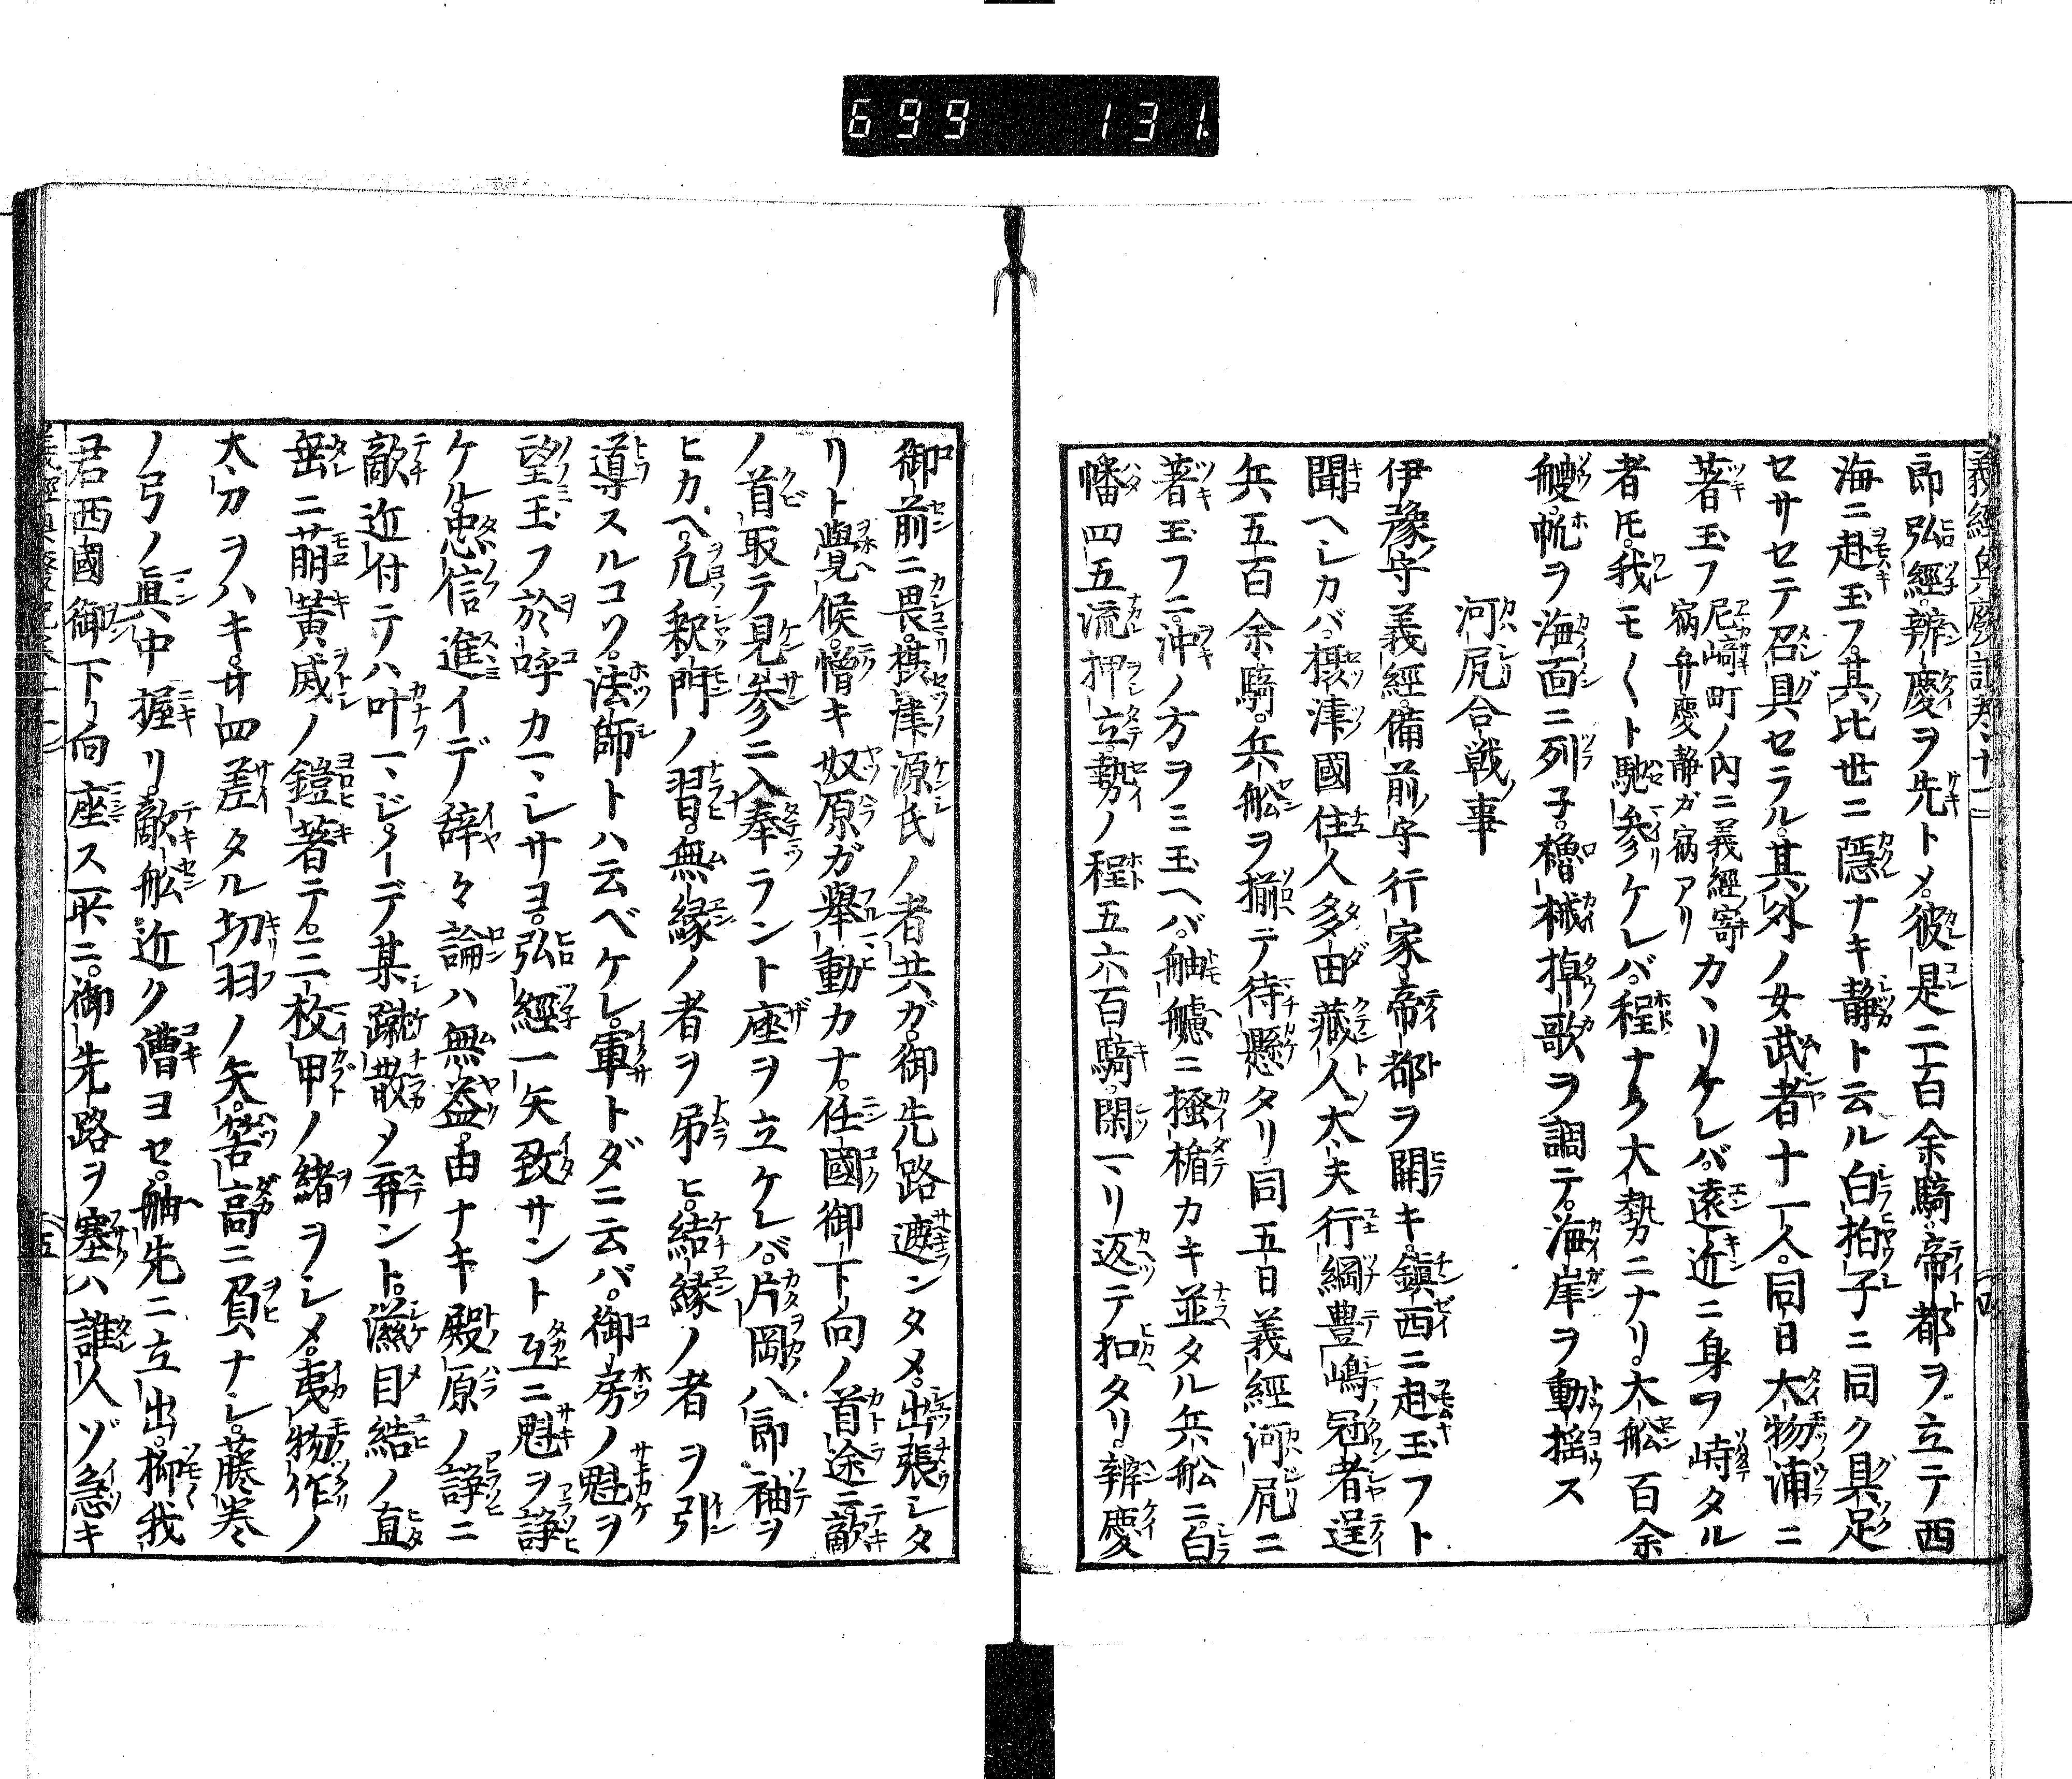 699 131.
郎弘經辨慶ヲ先トメ。彼是二百余騎。帝都ヲ立テ西
海ニ赴玉フ。其比世ニ隱ナキ静ト云ル白拍子ニ同ク具足
セサセテ召具セラル。其外ノ女武者十一人。同日大物浦ニ
著玉フ 尼﨑町ノ內ニ義經寄宿弁慶静ガ宿アリ カヽリケレバ。遠近ニ身ヲ峙タル
者㐧。我モ〱ト馳參ケレバ。程ナク大勢ニナリ。大舩百余
艘。帆ヲ海面ニ列子。櫓械掉歌ヲ調テ。海岸ヲ動揺ス
河尻合戦ノ事
伊豫守義經。備前ノ守行家。帝都ヲ開キ。鎭西ニ赴玉フト
聞ヘシカバ。摂津國ノ住人多由藏人大夫行綱。豊嶋冠者。逞
兵五百余騎。兵舩ヲ揃テ待懸タリ。同五日義經河尻ニ
著玉フニ。沖ノ方ヲミ玉ヘバ。舳艫ニ搔楯カキ並タル兵舩ニ。白
幡四五流押立。勢ノ程五六百騎。閑マリ返テ扣タリ。辨慶
御前ニ畏。摂津源氏ノ者共ガ。御先路遮ンタメ。出張シタ
リト覺ヘ候。憎キ奴原ガ舉動カナ。任國御下向ノ首途ニ。敵
ノ首取テ見參ニ入奉ラント座ヲ立ケレバ。片岡八郎袖ヲ
ヒカヘ。凡釈門ノ習。無縁ノ者ヲ吊ヒ。結縁ノ者ヲ引
導スルコソ。法師トハ云ベケレ。軍トダニ云バ。御房ノ魁ヲ
望玉フ於呼カマシサヨ。弘經一矢致サント互ニ魁ヲ諍
ケル。忠信進イデ辞々論ハ無益。由ナキ殿原ノ諍ニ
敵近付テハ叶マジ。イデ某蹴散メ弃ント。滋目結ノ直
垂ニ萠黃威ノ鎧著テ。三枚甲ノ緒ヲシメ。夷物作ノ
太刀ヲハキ。廿四差タル切羽ノ矢。筈高ニ負ナシ。藤巻
ノ弓ノ眞中握リ。敵舩近ク漕ヨセ。舳先ニ立出。抑我
君西國御下リ向座ス所ニ。御先路ヲ塞ハ誰人ゾ。急キ